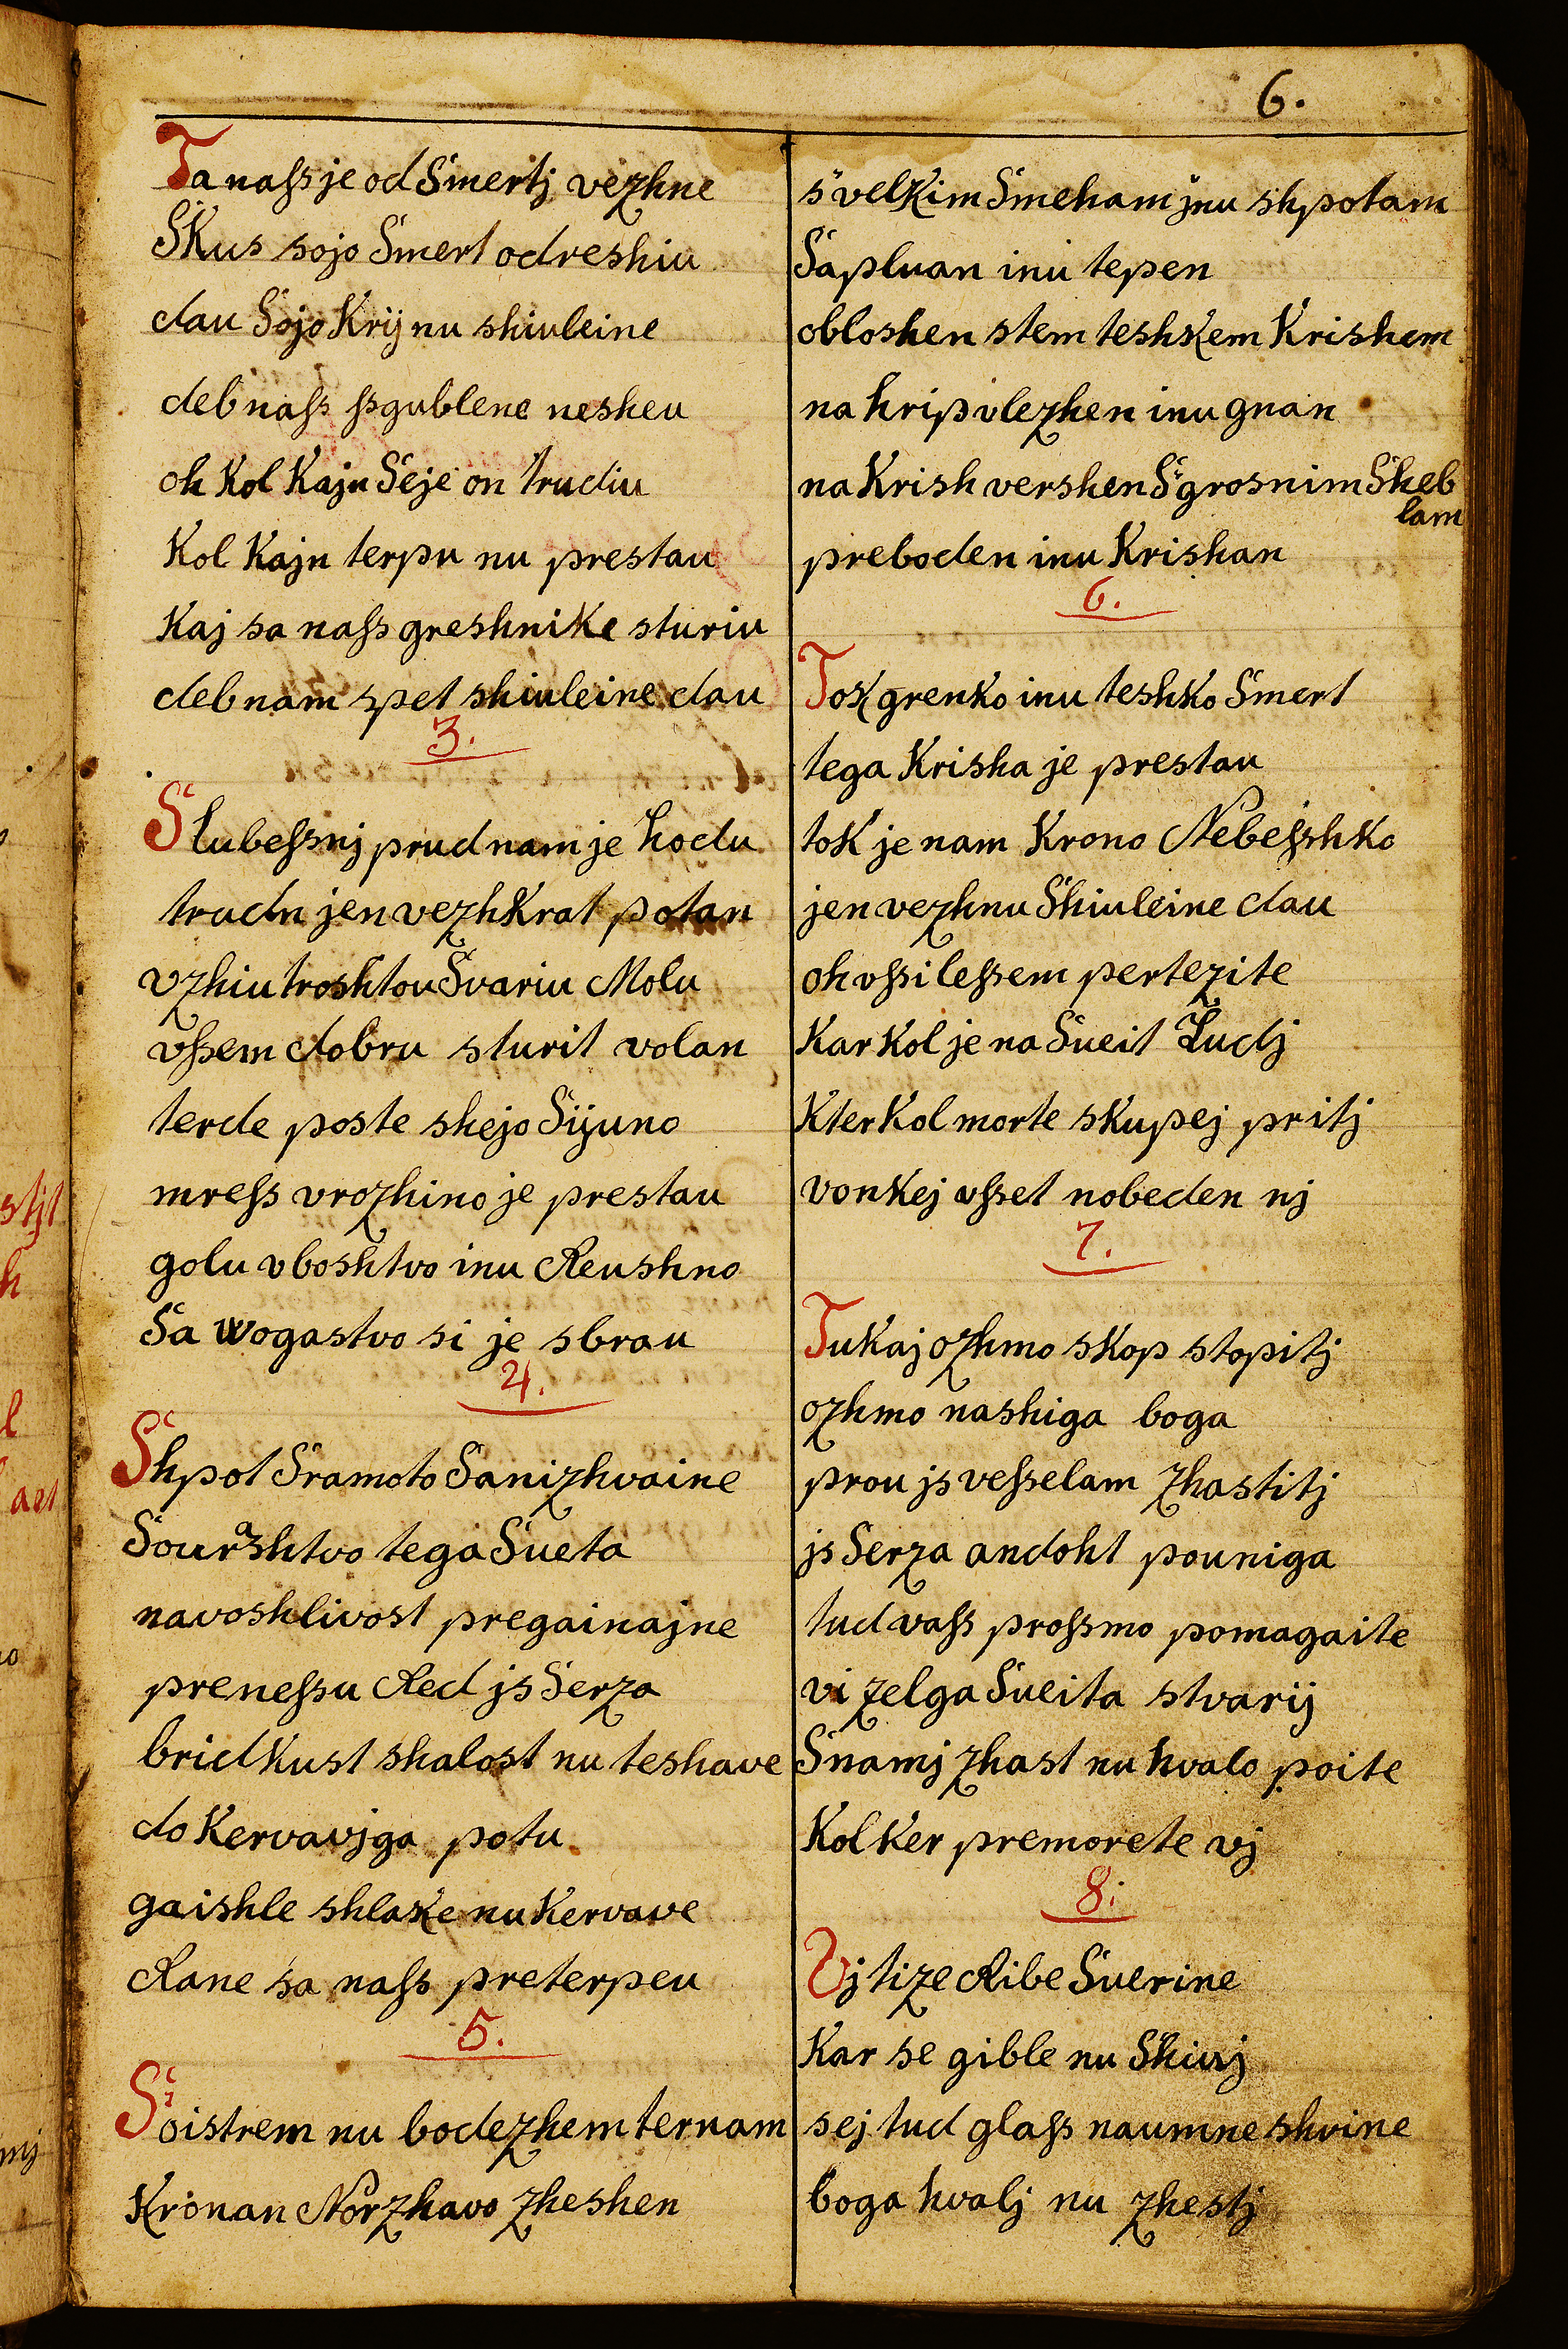 6.
Ta naſs je od Smertj vezhne
Skus sojo Smert odreshiu
dau Sojo Krij nu shiuleine
deb naſs ſsgublene nesheu
oh Kol Kajn Seje on trudiu
Kol Kajn terpu nu prestau
Kaj sa naſs greshnike sturiu
deb nam spet shiuleine dau
3.
Slubeſsnj prud nam je hodu
trudn jen vezhkrat potan
vzhiu troshtou Svariu Molu
vſsem dobru sturit volan
terde poste shejo Sijuno
mreſs vrozhino je prestau
golu vboshtvo inu Reushno
Sa wogastvo si je sbrau
4.
Shpot Sramoto Sanizhvaine
Sourashtvo tega Sueta
navoshlivost pregainajne
preneſsu Red js Serza
bridkust shalost nu teshave
do Kervavjga potu
gaishle shlake nu Kervave
Rane sa naſs preterpeu
5.
Soistrem nu bodezhem ternam
Kronan Norzhavo zheshen
s velkim Smeham jnu shpotam
Sapluan inu tepen
obloshen stem teshkem Krishem
na hrip vlezhen inu gnan
na Krish vershen S grosnim Sheb
lam
preboden inu Krishan
6.
Tok grenko inu teshko Smert
tega Krisha je prestau
tok je nam Krono Nebeſshko
jen vezhnu Shiuleine dau
oh vſsi leſsem pertezite
Kar Kol je na Sueit Ludj
Kter Kol morte skupej pritj
vonkej vſset nobeden nj
7.
Tukaj ozhmo skop stopitj
ozhmo nashiga boga
prou js veſselam zhastitj
js Serza andoht pouniga
tud vaſs proſsmo pomagaite
vi zelga Sueita stvarij
Snamj zhast nu hvalo poite
Kolker premorete vj
8.
Vj tize Ribe Suerine
Kar se gible nu Shivj
sej tud glaſs naumne shvine
boga hvalj nu zhestj